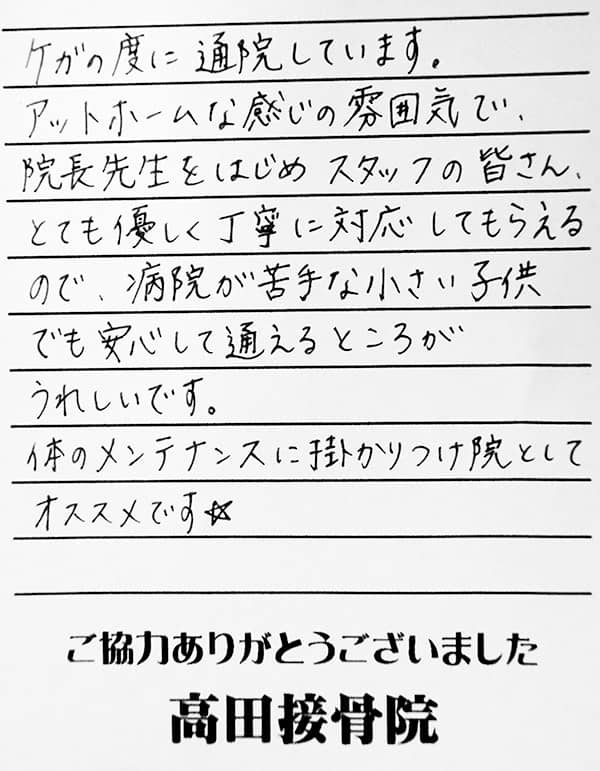 ケガの度に通院しています。
アットホームな感じの雰囲気で、
院長先生をはじめスタッフの皆さん、
とても優しく丁寧に対応してもらえる
ので、病院が苦手な小さい子供
でも安心して通えるところが
うれしいです。
体のメンテナンスに掛かりつけ院として
オススメです☆
ご協力ありがとうございました
高田接骨院